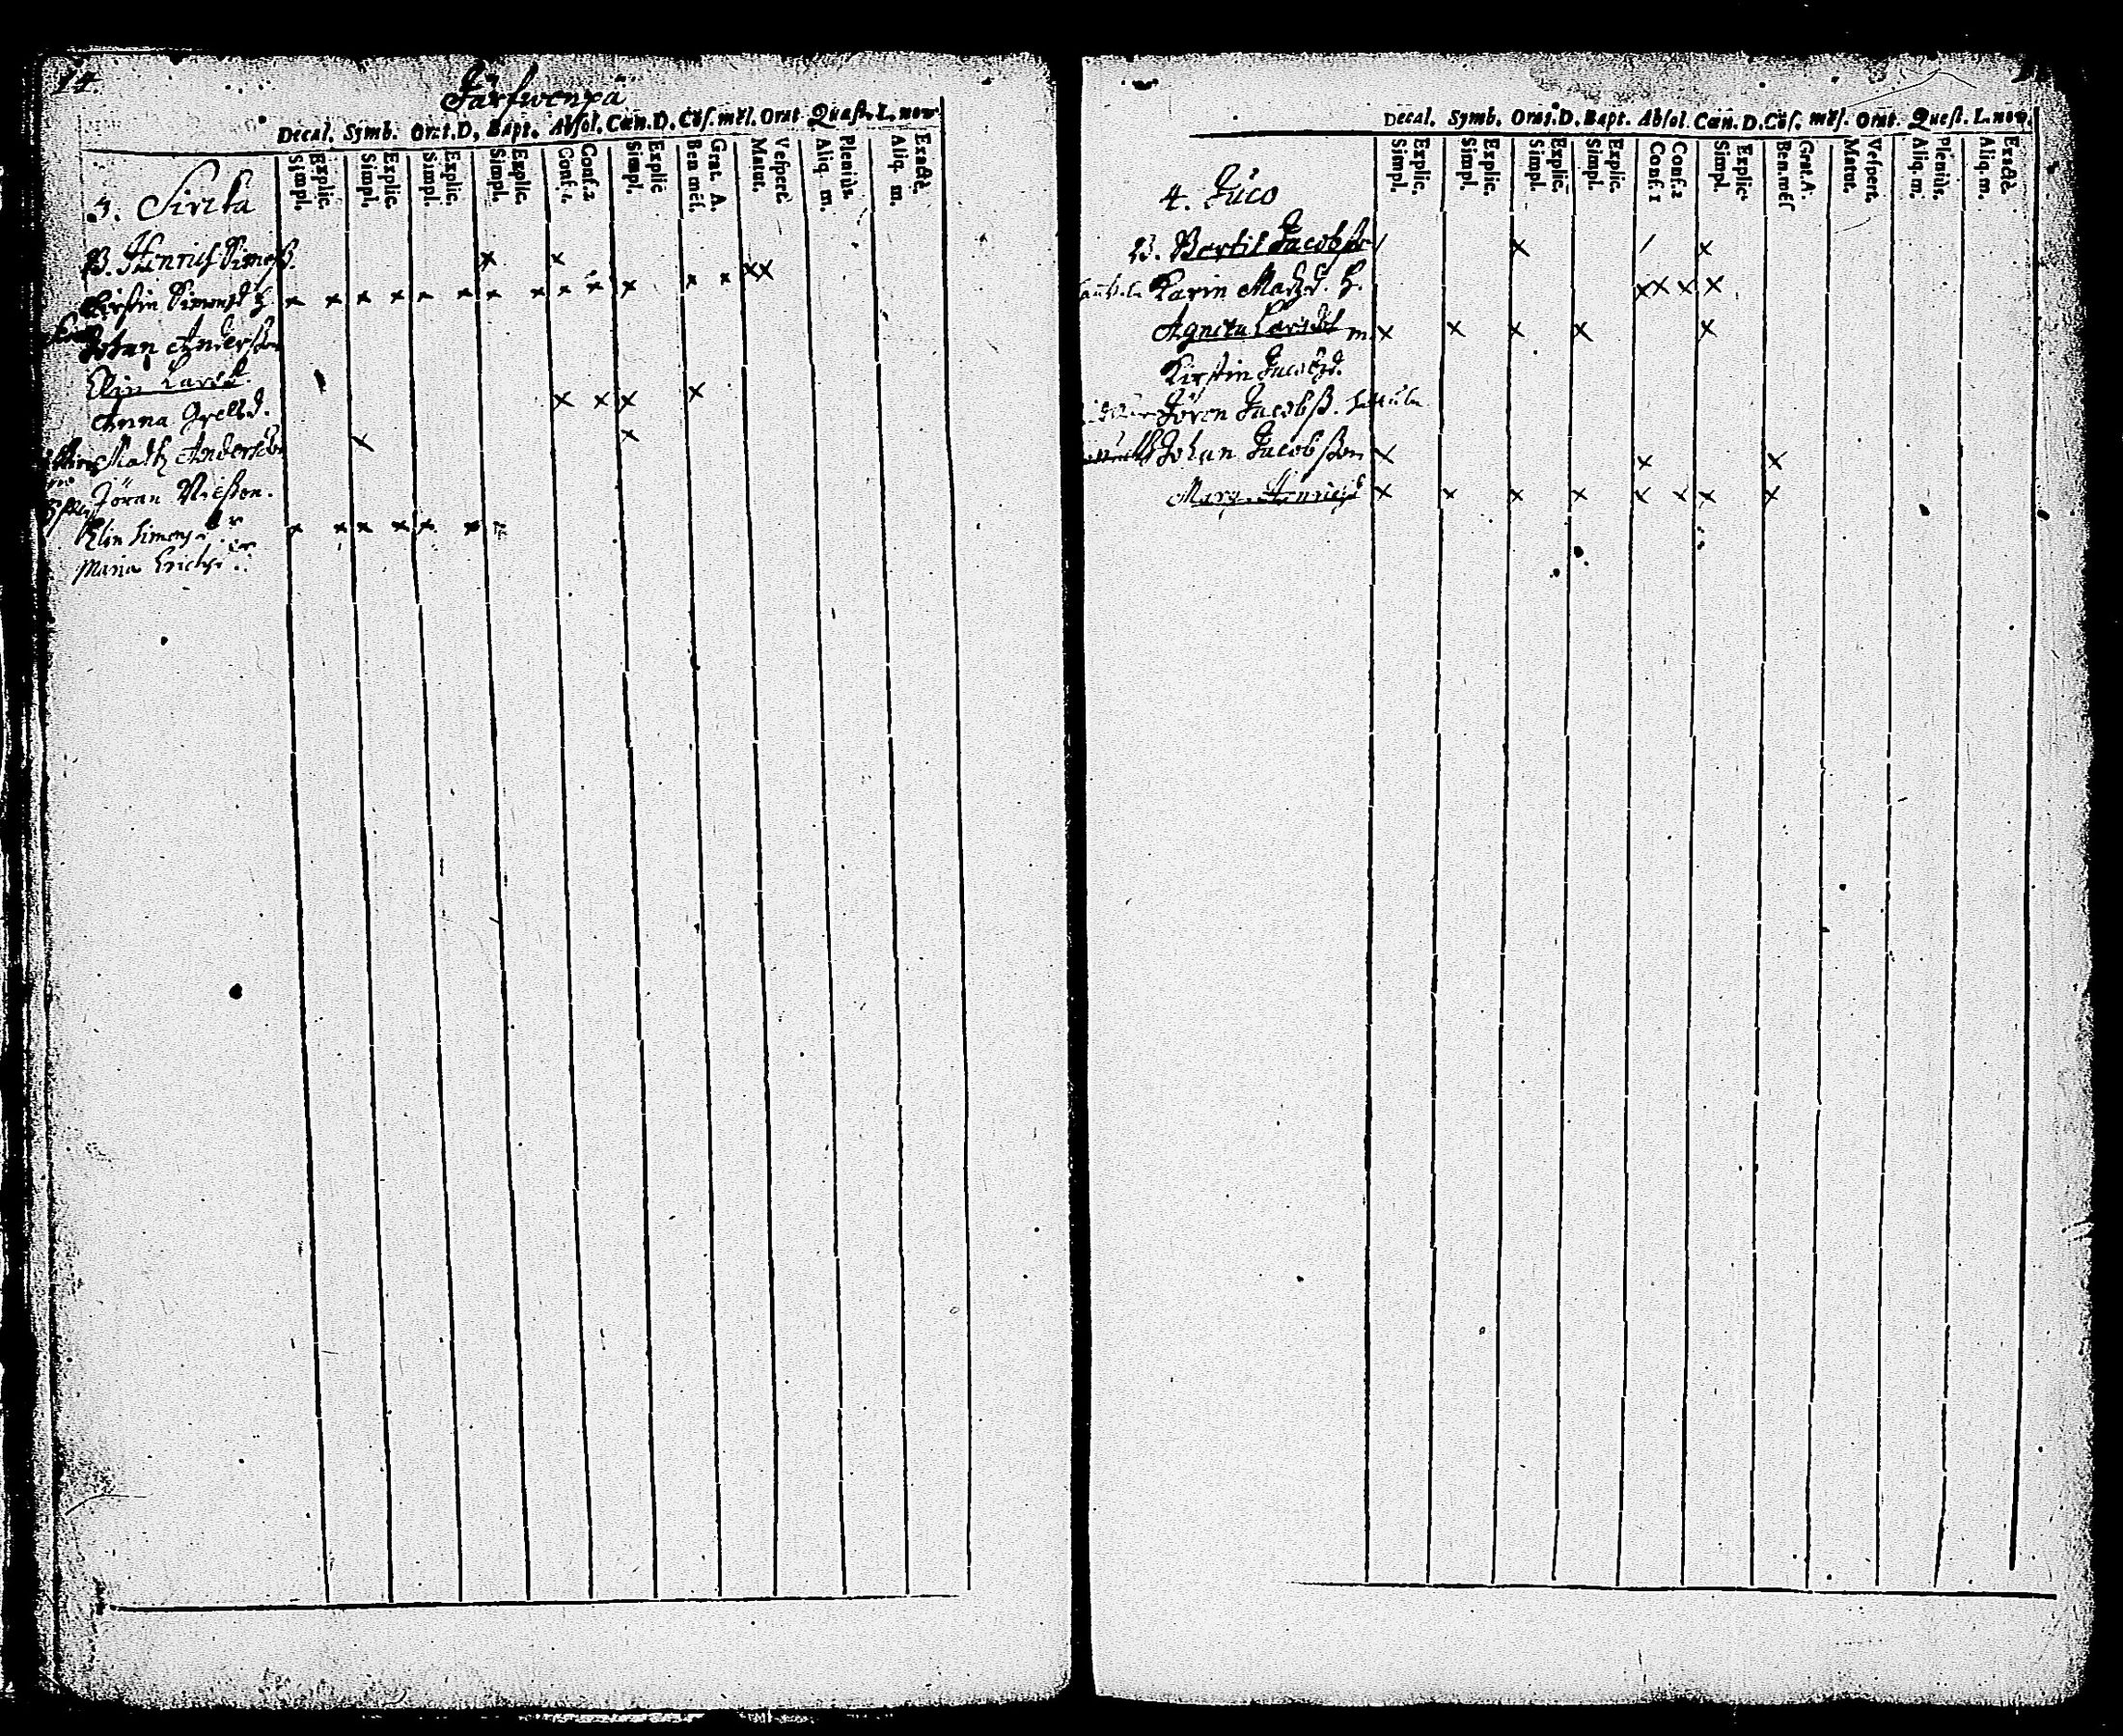 14.
Järfwenpä
Decal. Symb. Orat.D. Bapt. Absol. Cœn.D. Cōf. mēs. Orat. Quæst. L. nov.
Simpl. Explic. Simpl. Explic. Simpl. Explic. Simpl. Explic. Conf. 1 Conf. 2 Simpl. Explic. Ben mēs. Grat. A. Matut. Vespert. Aliq. m. Pleniùs. Aliq. m. Exactè.
3. Sirola
B. Hinrich Simoß.
Kirstin Simonsd. H.
Johan Anderßon
Elin Larsd.
Anna Grelsd.
Matz Anderßon
Jöran Nilsson.
Elin Simonsd:r
Maria Erichsd:r
Decal. Symb. Orat.D. Bapt. Absol. Cœn. D. Cōf. mēs. Orat. Quest. L. nov.
Simpl. Explic. Simpl. Explic. Simpl. Explic. Simpl. Explic. Conf. 1 Conf. 2 Simpl. Explic. Ben. mēs Grat. A. Matut. Vespert. Aliq. m. Pleniùs. Aliq. m. Exactè.
4. Juco
B. Bertil Jacobßon
Karin Matzd. H.
Agneta Larsdot m.
Kirstin Jacobsd.
Jören Jacobß.
Johan Jacobßon
Marg. Hinrichsd